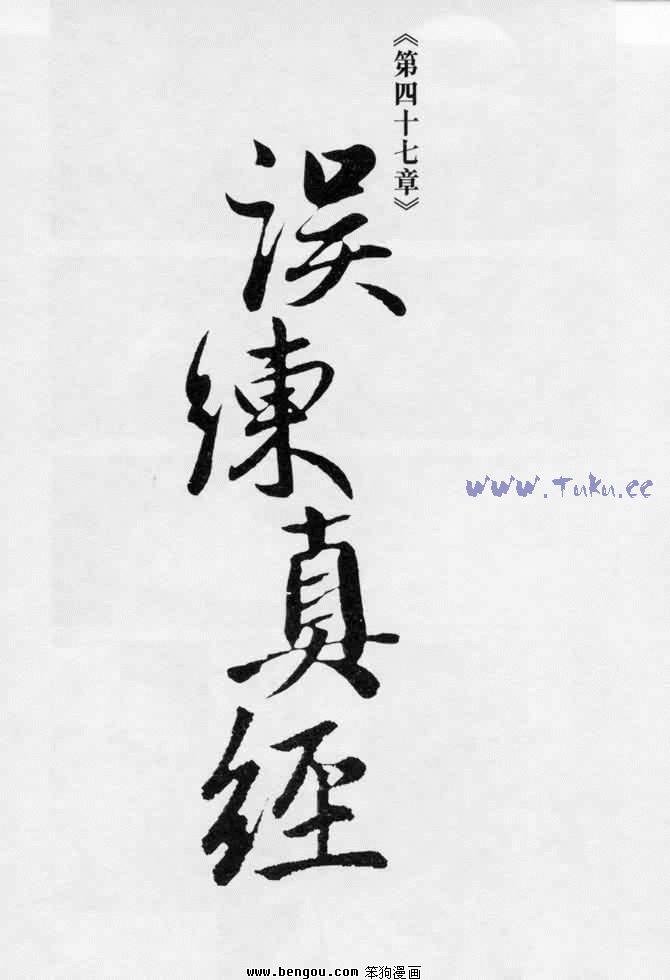 《第四十七章》
误練真経
www.Tuku.cc
www.bengou.com 笨狗漫画